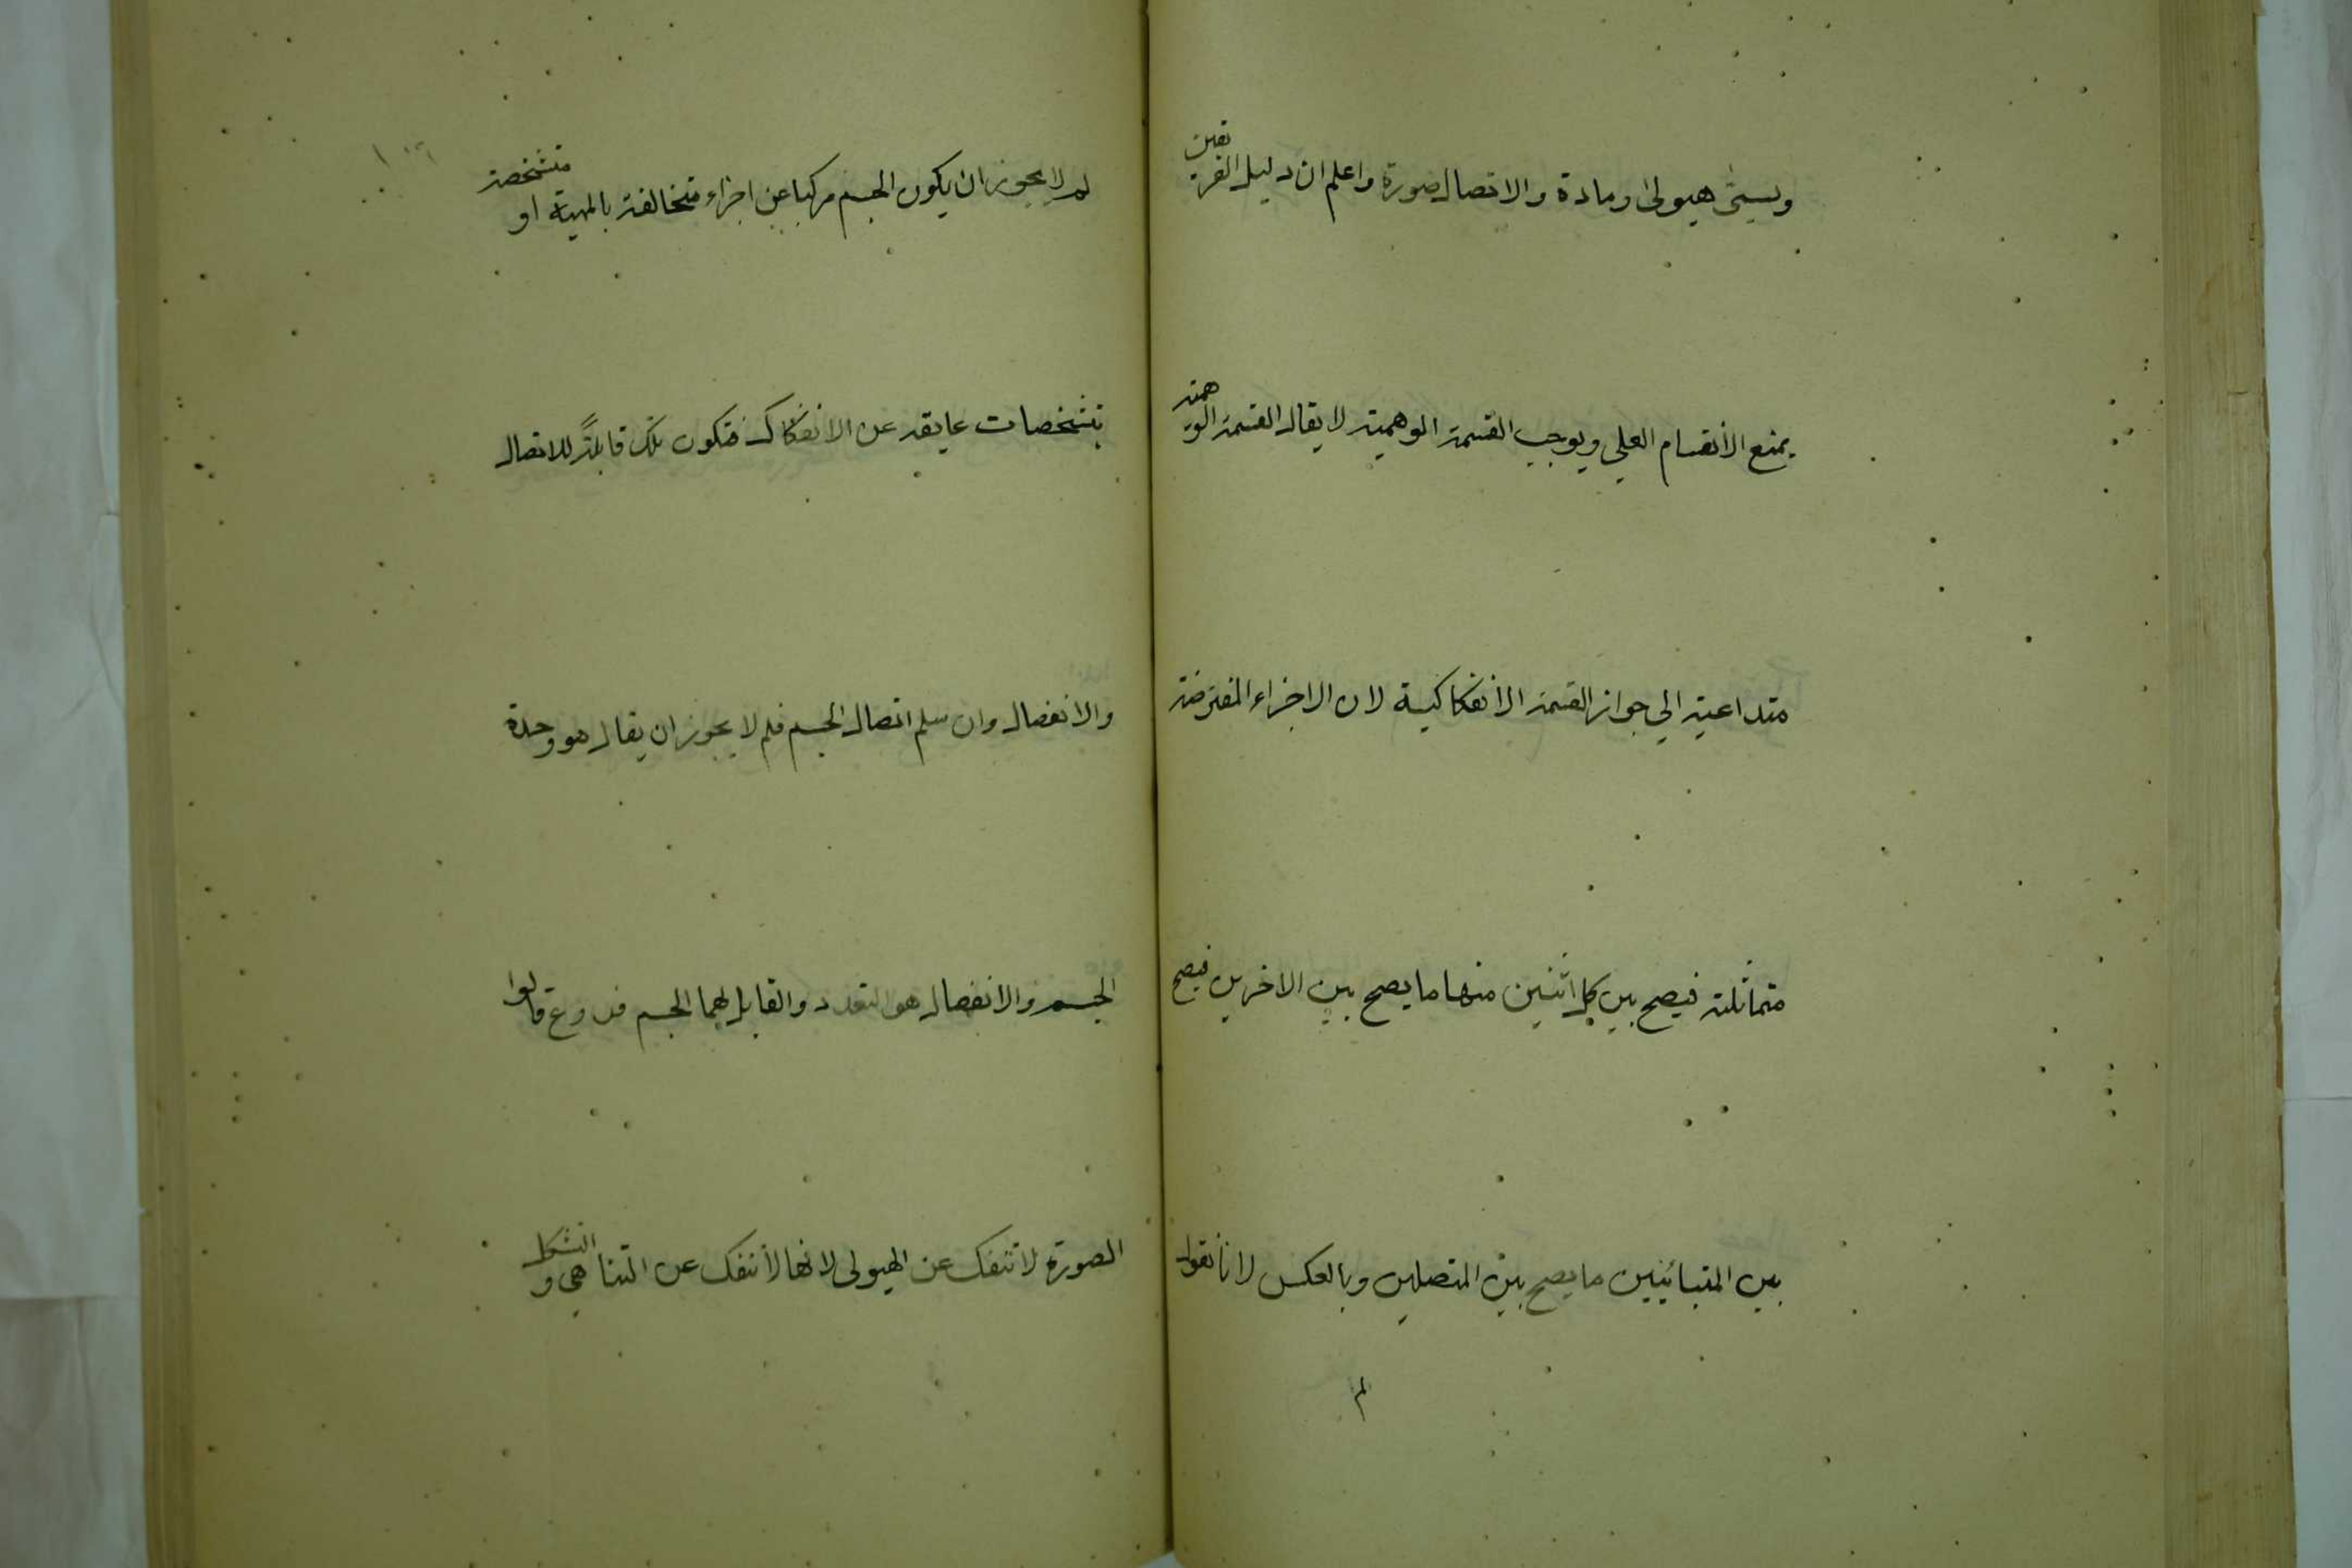 ويسمى هيولى ومادة والاتصال صورة واعلم ان دليل الفريقين
يمنع الأنقسام الفعلي ويوجب القسمة الوهمية لا يقال القسمة الوهمية
متداعية الي جواز القسمة الأنفكاكية لان الاجزاء المفترضة
متماثلة فيصح بين كل اثنين منها ما يصح بين الاخرين فيصح
بين المتباينين ما يصح بين المتصلين وبالعكس لانا نقول
لم
لم لا يجوز ان يكون الجسم مركبا عن اجزاء متخالفة بالمهية او متشخصة
بتشخصات عايقة عن الانفكاك فتكون تلك قابلةً للاتصال
والانفصال وان سلم اتصال الجسم فلم لا يجوز ان يقال هو وحدة
الجسم والانفصال هو التعدد والقابل لهما الجسم فروع قالوا
الصورة لا تنفك عن الهيولى لانها لا تنفك عن التناهي والتشكل